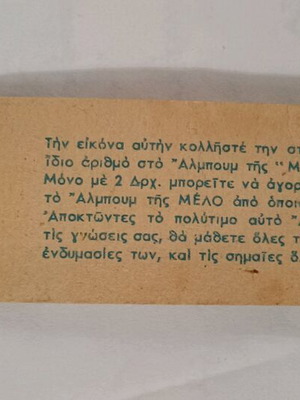 Τὴν εἰκόνα αὐτὴν κολλῆστέ την στ
ἴδιο ἀριθμὸ στὸ "Αλμπουμ τῆς "Μ
Μόνο μὲ 2 Δρχ. μπορεῖτε νὰ ἀγορ
τὸ "Αλμπουμ τῆς ΜΕΛΟ ἀπὸ ὁποι
Ἀποκτῶντες τὸ πολύτιμο αὐτὸ "Α
τὶς γνώσεις σας, θὰ μάθετε ὅλες τ
ἐνδυμασίες των, καὶ τὶς σημαῖες ὅ